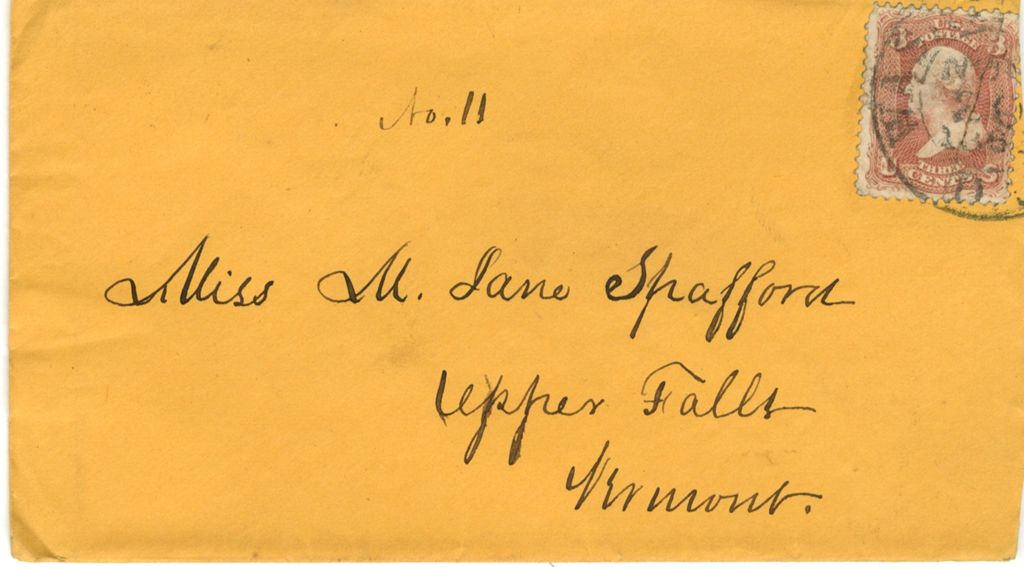 No. 11
U.S.
POSTAGE
3 3
THREE
CENTS
Miss M. Jane Spafford
Upper Falls
Vermont.